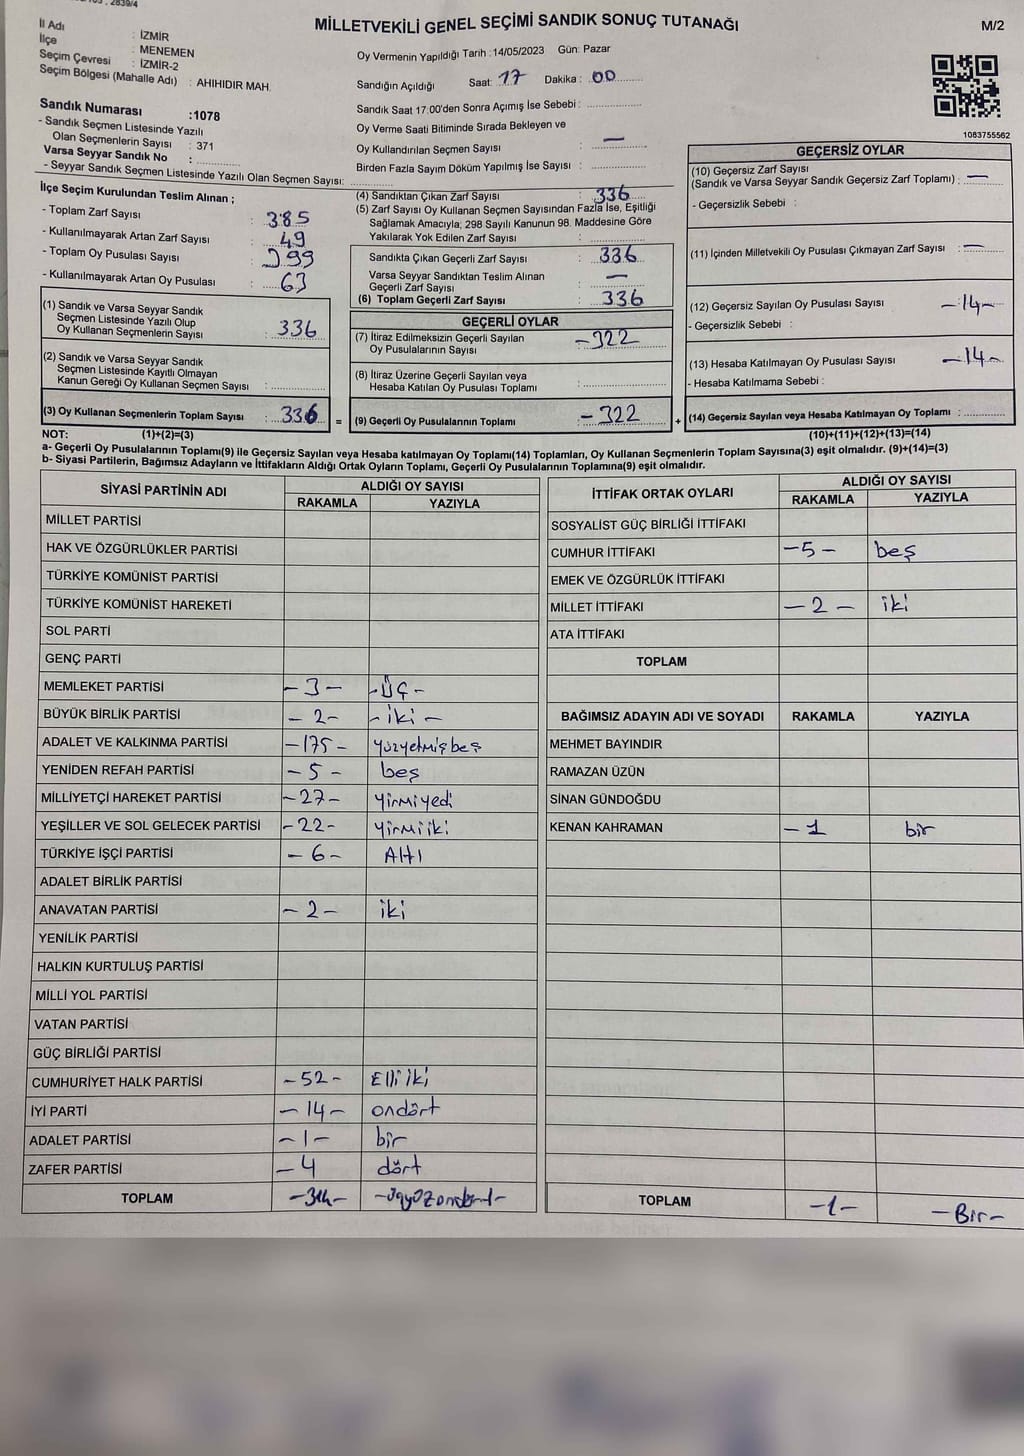 2839/4
MİLLETVEKİLİ GENEL SEÇİMİ SANDIK SONUÇ TUTANAĞI
M/2
İl Adı : İZMİR
İlçe : MENEMEN
Seçim Çevresi : İZMİR-2
Seçim Bölgesi (Mahalle Adı) : AHIHIDIR MAH.
Sandık Numarası :1078
- Sandık Seçmen Listesinde Yazılı
Olan Seçmenlerin Sayısı : 371
Varsa Seyyar Sandık No :
- Seyyar Sandık Seçmen Listesinde Yazılı Olan Seçmen Sayısı:
Oy Vermenin Yapıldığı Tarih : 14/05/2023 Gün: Pazar
Sandığın Açıldığı Saat: 17 Dakika : 00
Sandık Saat 17:00'den Sonra Açımış İse Sebebi :
Oy Verme Saati Bitiminde Sırada Bekleyen ve
Oy Kullandırılan Seçmen Sayısı : —
Birden Fazla Sayım Döküm Yapılmış İse Sayısı :
1083755562
İlçe Seçim Kurulundan Teslim Alınan ;
- Toplam Zarf Sayısı : 385
- Kullanılmayarak Artan Zarf Sayısı : 49
- Toplam Oy Pusulası Sayısı : 399
- Kullanılmayarak Artan Oy Pusulası : 63
(1) Sandık ve Varsa Seyyar Sandık
Seçmen Listesinde Yazılı Olup
Oy Kullanan Seçmenlerin Sayısı : 336
(2) Sandık ve Varsa Seyyar Sandık
Seçmen Listesinde Kayıtlı Olmayan
Kanun Gereği Oy Kullanan Seçmen Sayısı :
(3) Oy Kullanan Seçmenlerin Toplam Sayısı : 336 =
(4) Sandıktan Çıkan Zarf Sayısı : 336
(5) Zarf Sayısı Oy Kullanan Seçmen Sayısından Fazla İse, Eşitliği
Sağlamak Amacıyla; 298 Sayılı Kanunun 98. Maddesine Göre
Yakılarak Yok Edilen Zarf Sayısı :
Sandıkta Çıkan Geçerli Zarf Sayısı : 336
Varsa Seyyar Sandıktan Teslim Alınan
Geçerli Zarf Sayısı : —
(6) Toplam Geçerli Zarf Sayısı : 336
GEÇERLİ OYLAR
(7) İtiraz Edilmeksizin Geçerli Sayılan
Oy Pusulalarının Sayısı : -322
(8) İtiraz Üzerine Geçerli Sayılan veya
Hesaba Katılan Oy Pusulası Toplamı :
(9) Geçerli Oy Pusulalarının Toplamı : -322 +
GEÇERSİZ OYLAR
(10) Geçersiz Zarf Sayısı
(Sandık ve Varsa Seyyar Sandık Geçersiz Zarf Toplamı) : —
- Geçersizlik Sebebi :
(11) İçinden Milletvekili Oy Pusulası Çıkmayan Zarf Sayısı : —
(12) Geçersiz Sayılan Oy Pusulası Sayısı : -14-
- Geçersizlik Sebebi :
(13) Hesaba Katılmayan Oy Pusulası Sayısı : -14-
- Hesaba Katılmama Sebebi :
(14) Geçersiz Sayılan veya Hesaba Katılmayan Oy Toplamı :
NOT: (1)+(2)=(3) (10)+(11)+(12)+(13)=(14)
a- Geçerli Oy Pusulalarının Toplamı(9) ile Geçersiz Sayılan veya Hesaba katılmayan Oy Toplamı(14) Toplamları, Oy Kullanan Seçmenlerin Toplam Sayısına(3) eşit olmalıdır. (9)+(14)=(3)
b- Siyasi Partilerin, Bağımsız Adayların ve İttifakların Aldığı Ortak Oyların Toplamı, Geçerli Oy Pusulalarının Toplamına(9) eşit olmalıdır.
SİYASİ PARTİNİN ADI ALDIĞI OY SAYISI
RAKAMLA YAZIYLA
MİLLET PARTİSİ
HAK VE ÖZGÜRLÜKLER PARTİSİ
TÜRKİYE KOMÜNİST PARTİSİ
TÜRKİYE KOMÜNİST HAREKETİ
SOL PARTİ
GENÇ PARTİ
MEMLEKET PARTİSİ -3- -ÜÇ-
BÜYÜK BİRLİK PARTİSİ -2- -iki-
ADALET VE KALKINMA PARTİSİ -175- yüzyetmişbeş
YENİDEN REFAH PARTİSİ -5- beş
MİLLİYETÇİ HAREKET PARTİSİ -27- yirmiyedi
YEŞİLLER VE SOL GELECEK PARTİSİ -22- yirmiiki
TÜRKİYE İŞÇİ PARTİSİ -6- Altı
ADALET BİRLİK PARTİSİ
ANAVATAN PARTİSİ -2- iki
YENİLİK PARTİSİ
HALKIN KURTULUŞ PARTİSİ
MİLLİ YOL PARTİSİ
VATAN PARTİSİ
GÜÇ BİRLİĞİ PARTİSİ
CUMHURİYET HALK PARTİSİ -52- Elliiki
İYİ PARTİ -14- ondört
ADALET PARTİSİ -1- bir
ZAFER PARTİSİ -4 dört
TOPLAM -314- -üçyüzondört-
İTTİFAK ORTAK OYLARI ALDIĞI OY SAYISI
RAKAMLA YAZIYLA
SOSYALİST GÜÇ BİRLİĞİ İTTİFAKI
CUMHUR İTTİFAKI -5- beş
EMEK VE ÖZGÜRLÜK İTTİFAKI
MİLLET İTTİFAKI -2- iki
ATA İTTİFAKI
TOPLAM
BAĞIMSIZ ADAYIN ADI VE SOYADI RAKAMLA YAZIYLA
MEHMET BAYINDIR
RAMAZAN ÜZÜN
SİNAN GÜNDOĞDU
KENAN KAHRAMAN -1 bir
TOPLAM -1- -Bir-